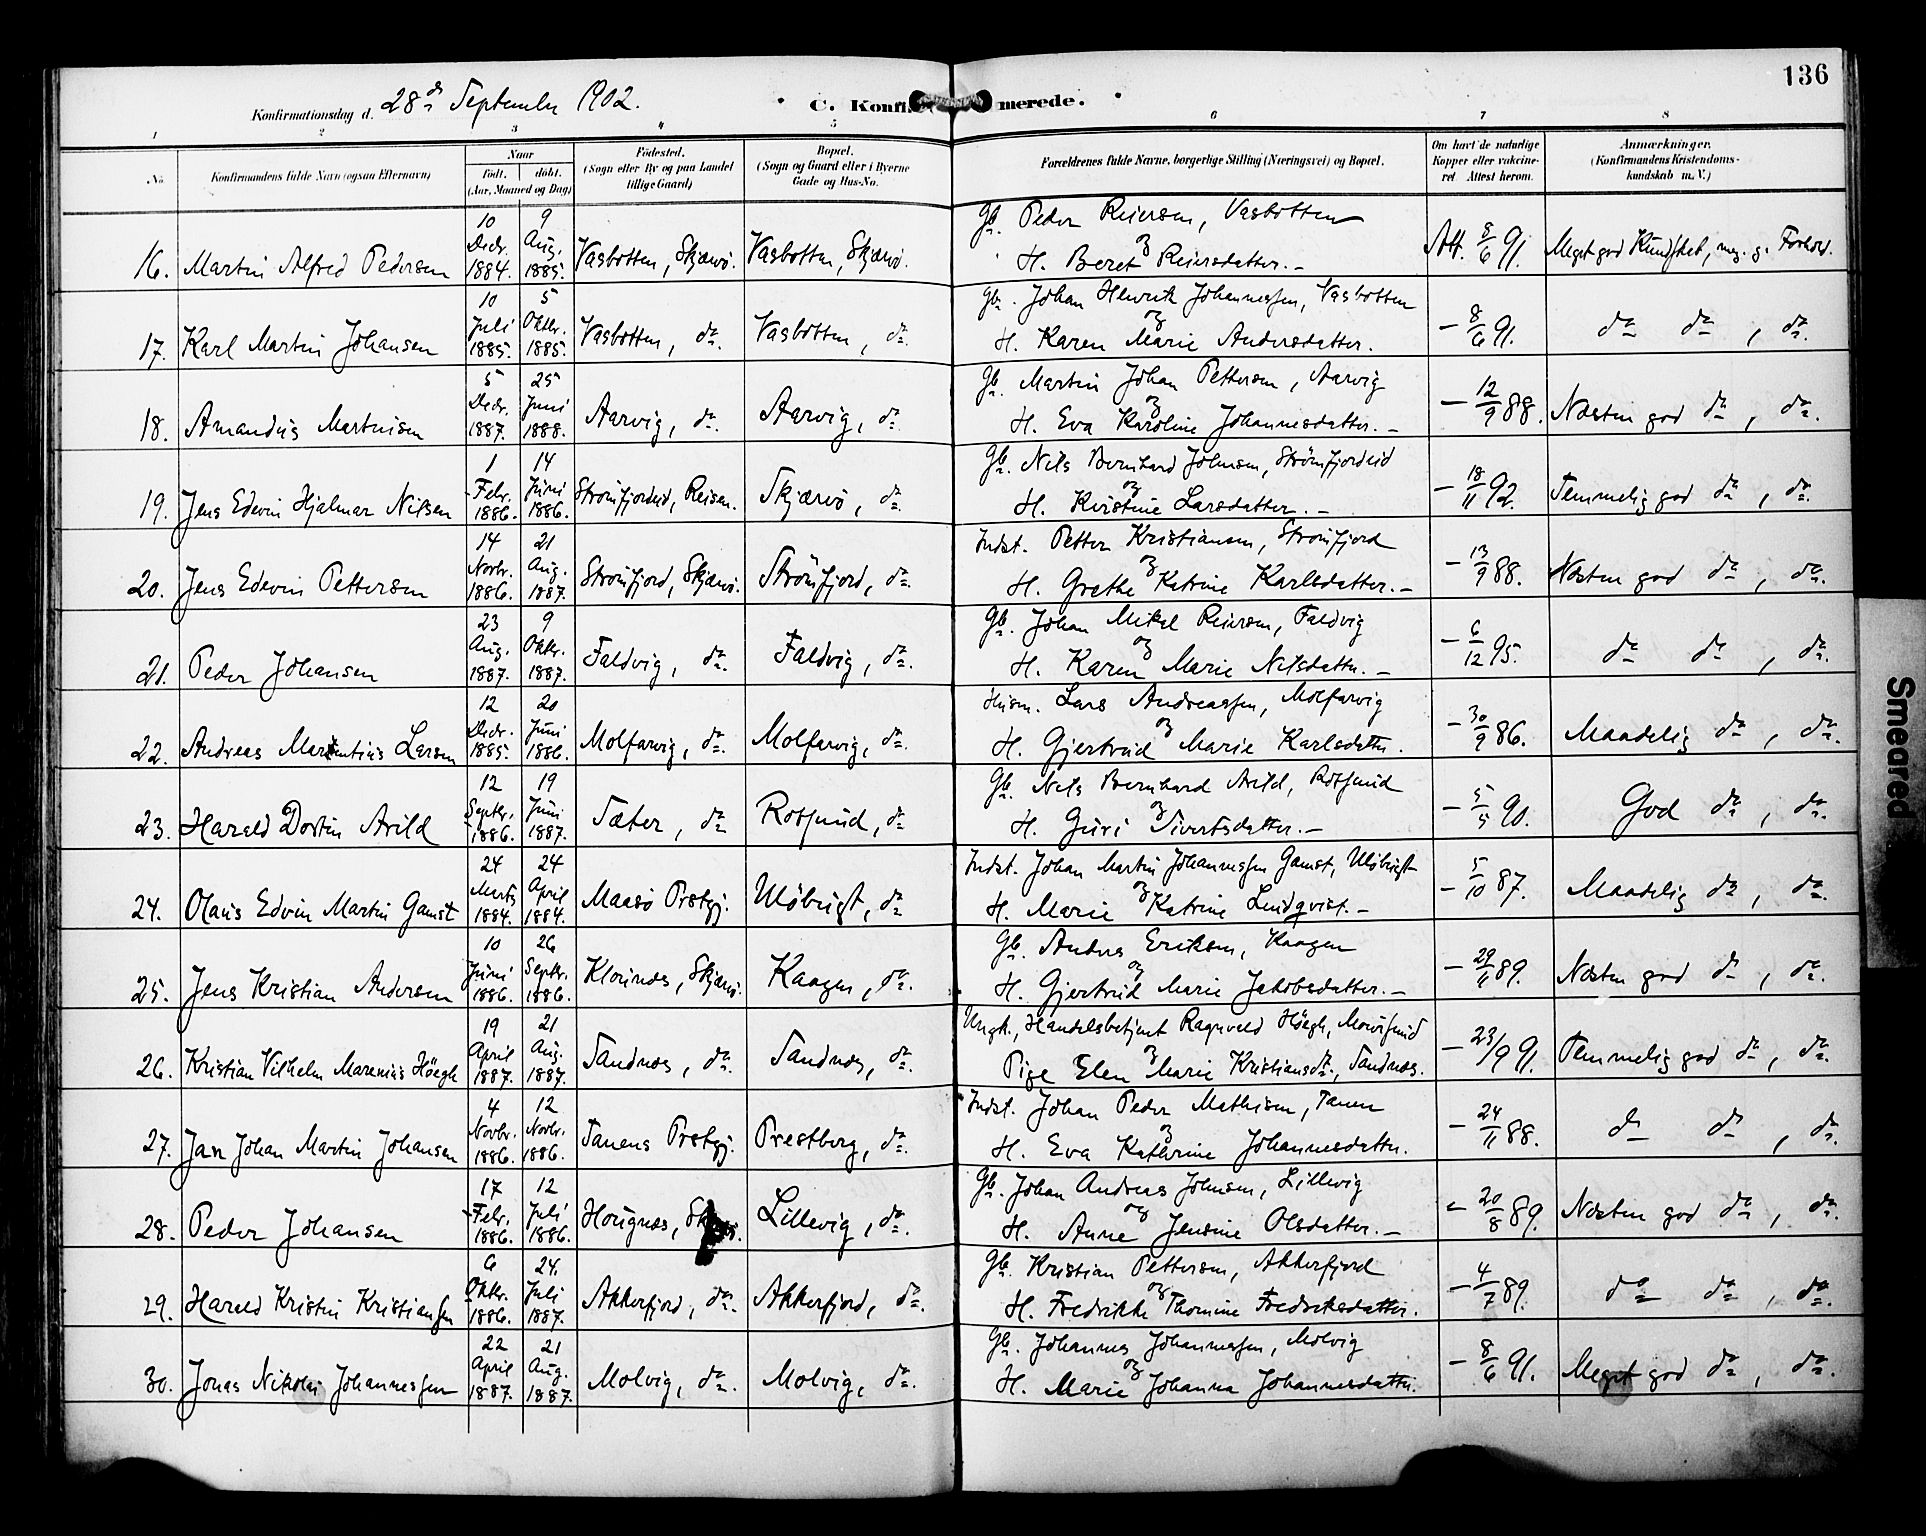 136
Konfirmationsdag d. 28de September 1902.
C. Konfirmerede.
1 2 3 4 5 6 7 8
No. Konfirmandens fulde Navn (ogsaa Efternavn) Naar født. døbt. (Aar, Maaned og Dag) Fødested. (Sogn eller By og paa Landet tillige Gaard) Bopæl. (Sogn og Gaard eller i Byerne Gade og Hus-No. Forældrenes fulde Navne, borgerlige Stilling (Næringsvei) og Bopæl. Om havt de naturlige Kopper eller vakcineret. Attest herom. Anmærkninger. (Konfirmandens Kristendomskundskab m. V.)
16. Martin Alfred Pedersen 10 Decbr. 1884. 9 Aug. 1885. Vasbotten, Skjærvø. Vasbotten, Skjærvø. Gb. Peder Reiersen, Vasbotten og H. Beret Reiersdatter. – Att. 8/6 91. Meget god Kundskab, meg. g. Forhold.
17. Karl Martin Johansen 10 Juli 1885. 5 Oktbr. 1885. Vasbotten, do. Vasbotten, do. Gb. Johan Henrik Johannessen, Vasbotten og H. Karen Marie Andersdatter. – 8/6 91. do do, do.
18. Amandus Martinsen 5 Decbr. 1887. 25 Juni 1888. Aarvig, do. Aarvig, do. Gb. Martin Johan Pettersen, Aarvig og H. Eva Karoline Johannesdatter. – – 12/9 88. Næsten god do, do.
19. Jens Edvin Hjalmar Nilsen 1 Febr. 1886. 14 Juni 1886. Strømfjordeid, Reisen. Skjærvø, do. Gb. Nils Bernhard Johnsen, Strømfjordeid og H. Kristine Larsdatter. – – 18/11 92. Temmelig god do, do.
20. Jens Edvin Pettersen 14 Novbr. 1886. 21 Aug. 1887. Strømfjord, Skjærvø. Strømfjord, do. Indst. Petter Kristiansen, Strømfjord og H. Grethe Katrine Karlsdatter. – – 13/9 88. Næsten god do, do.
21. Peder Johansen 23 Aug. 1887. 9 Oktbr. 1887. Faldvig, do. Faldvig, do. Gb. Johan Mikal Reiersen, Faldvig og H. Karen Marie Nilsdatter. – – 6/12 95. do do, do.
22. Andreas Marentius Larsen 12 Decbr. 1885. 20 Juni 1886. Molfarvig, do. Molfarvig, do. Husm. Lars Andreassen, Molfarvig og H. Gjertrud Marie Karlsdatter. – 30/9 86. Maadelig do, do.
23. Harald Dortin Arild 12 Septbr. 1886. 19 Juni 1887. Sæter, do Rotsund, do Gb. Nils Bernhard Arild, Rotsund og H. Guri Sivertsdatter. – – 5/5 90. God do, do.
24. Olaus Edvin Martin Gamst 24 Marts 1884. 24 April 1884. Maasø Prstgj. Uløbugt, do Indst. Johan Martin Johannessen Gamst, Uløbugt og H. Marie Katrine Lindqvist. – – 5/10 87. Maadelig do, do.
25. Jens Kristian Andersen 10 Juni 1886. 26 Septbr. 1886. Klovnæs, Skjærvø. Kaagen, do. Gb. Anders Eriksen, Kaagen og H. Gjertrud Marie Jakobsdatter. – – 29/6 89. Næsten god do, do.
26. Kristian Vilhelm Marenius Høegh 19 April 1887. 21 Aug. 1887. Sandnæs, do. Sandnæs, do. Ungk., Handelsbetjent Ragnvald Høegh, Maursund og Pige Elen Marie Kristiansdtr., Sandnæs. – 23/9 91. Temmelig god do, do.
27. Jan Johan Martin Johansen 4 Novbr. 1886. 12 Novbr. 1886. Tanens Prstgj. Prestberg, do. Indst. Johan Peder Mathisen, Tanen og H. Eva Kathrine Johannesdatter. – 24/11 88. do do, do.
28. Peder Johansen 17 Febr. 1886. 12 Juli 1886. Hougnæs, Lillevig, do. Gb. Johan Andreas Johnsen, Lillevig og H. Anne Jensine Olsdatter. – – 20/8 89. Næsten god do, do.
29. Harald Kristin Kristiansen 6 Oktbr. 1886. 24. Juli 1887. Akkerfjord, do. Akkerfjord, do. Gb. Kristian Pettersen, Akkerfjord og H. Fredrikke Thomine Fredriksdatter. – 4/7 89. do do, do.
30. Jonas Nikolai Johannessen 22 April 1887. 21 Aug. 1887. Molvig, do. Molvig, do. Gb. Johannes Johannessen, Molvig og H. Marie Johanna Johannesdatter. – 8/6 91. Meget god do, do.
Smeared